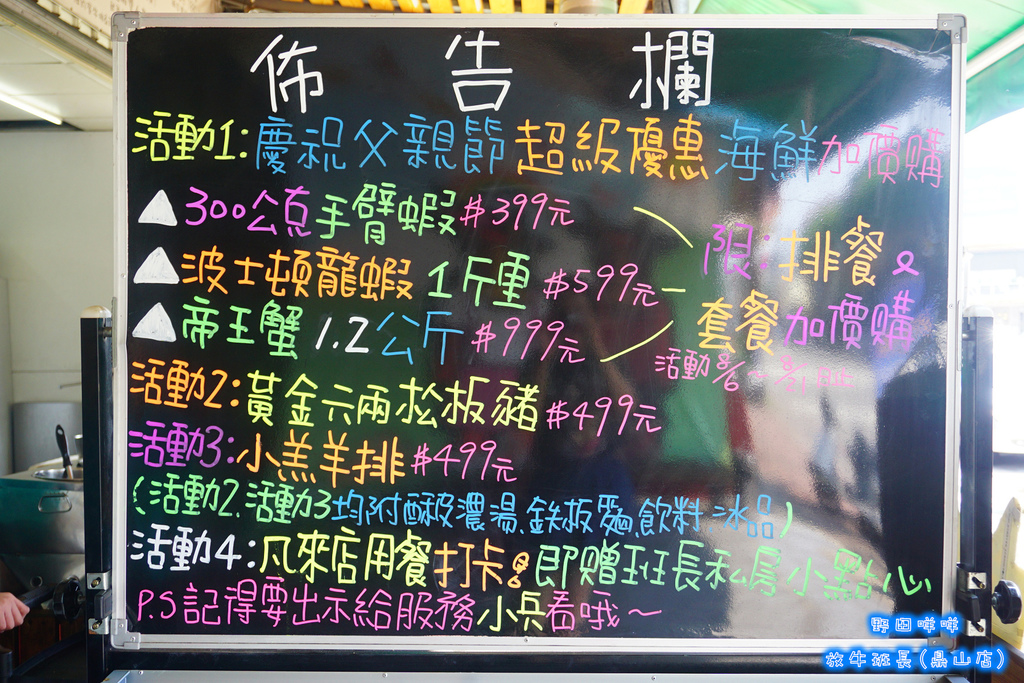 佈告欄
活動1:慶祝父親節超級優惠海鮮加價購
▲300公克手臂蝦#399元
▲波士頓龍蝦1斤重#599元
▲帝王蟹1.2公斤#999元
限:排餐&
套餐加價購
活動8/6~8/21日止
活動2:黃金六兩松板豬#499元
活動3:小羔羊排#499元
(活動2.活動3均附酥皮濃湯.鉄板麵.飲料.冰品)
活動4:凡來店用餐打卡!即贈班長私房小點心
P.S記得要出示給服務小兵看哦~
野囡咩咩
放牛班長(鼎山店)